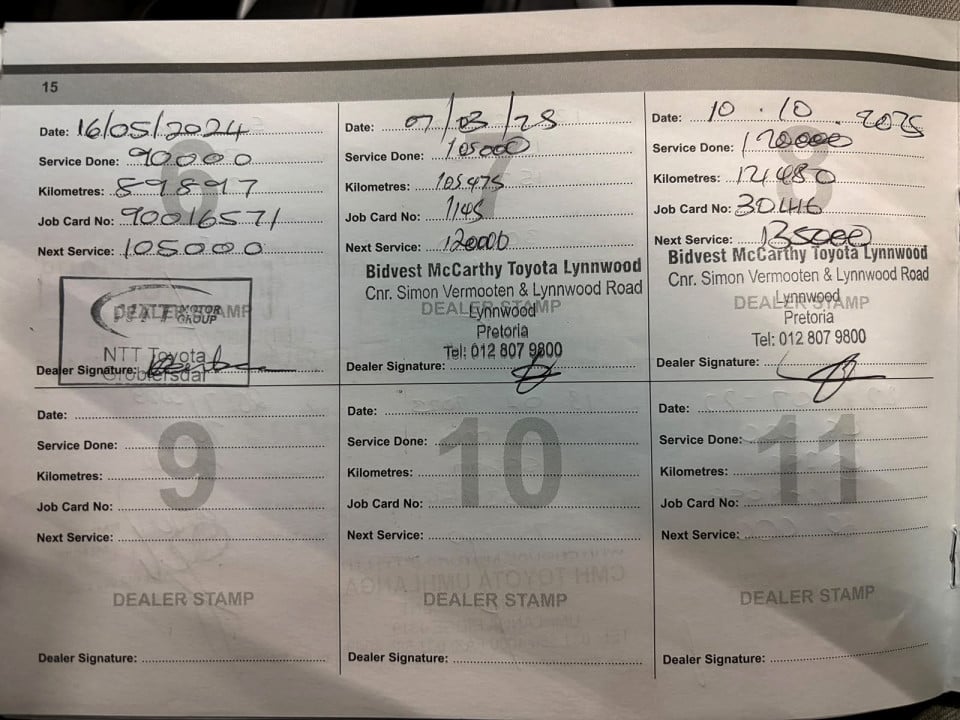 15
Date: 16/05/2024
Service Done: 90000
Kilometres: 89897
Job Card No: 90016571
Next Service: 105000
6
DEALER STAMP
NTT MOTOR GROUP
NTT Toyota
Groblersdal
Dealer Signature:
Date: 07/03/25
Service Done: 105000
Kilometres: 105475
Job Card No: 1145
Next Service: 120000
7
Bidvest McCarthy Toyota Lynnwood
Cnr. Simon Vermooten & Lynnwood Road
DEALER STAMP
Lynnwood
Pretoria
Tel: 012 807 9800
Dealer Signature:
Date: 10.10.2025
Service Done: 120000
Kilometres: 121480
Job Card No: 30446
Next Service: 135000
8
Bidvest McCarthy Toyota Lynnwood
Cnr. Simon Vermooten & Lynnwood Road
Lynnwood
DEALER STAMP
Pretoria
Tel: 012 807 9800
Dealer Signature:
Date:
Service Done:
9
Kilometres:
Job Card No:
Next Service:
DEALER STAMP
Dealer Signature:
Date:
Service Done:
10
Kilometres:
Job Card No:
Next Service:
DEALER STAMP
Dealer Signature:
Date:
Service Done:
11
Kilometres:
Job Card No:
Next Service:
DEALER STAMP
Dealer Signature: